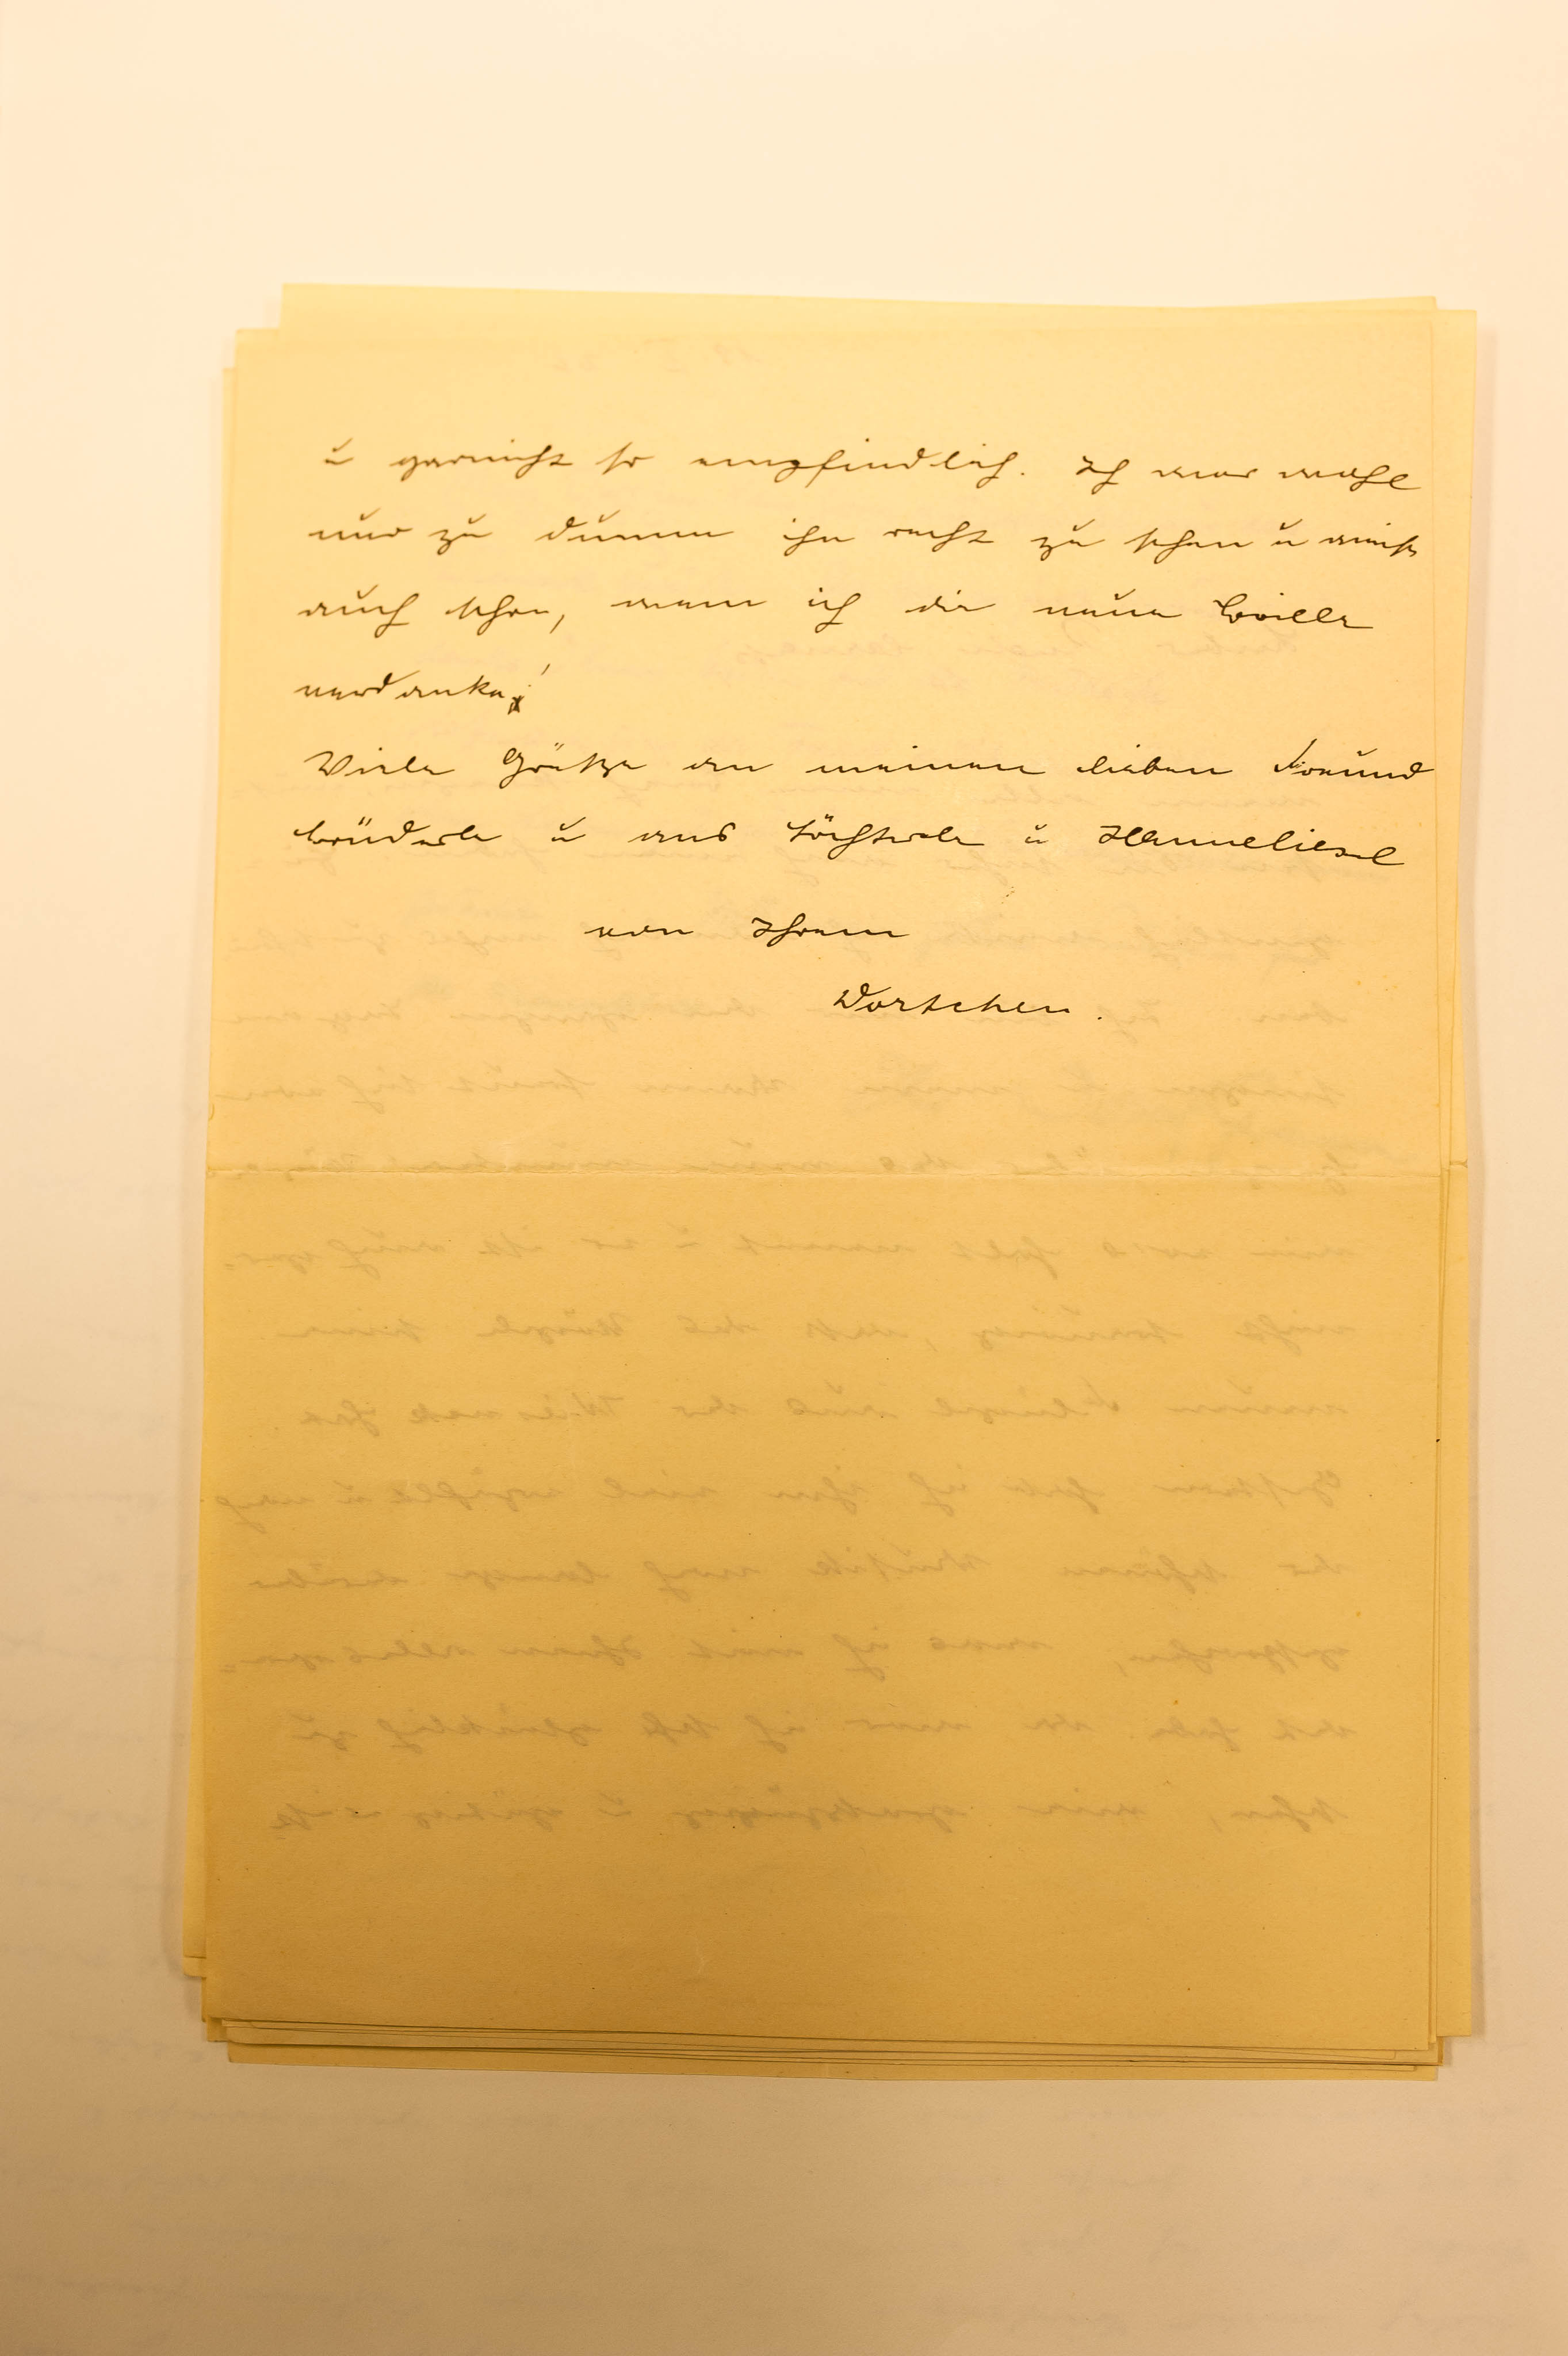 u garnicht so empfindlich. Ich war wohl
nur zu dumm ihn recht zu sehen u weiß
auch schon, wem ich die neue Brille
verdanke!
Viele Grüße an meinen lieben Freund
Brüderle u ans Töchterle u Hanneliesel
von Ihrem
Dortchen.